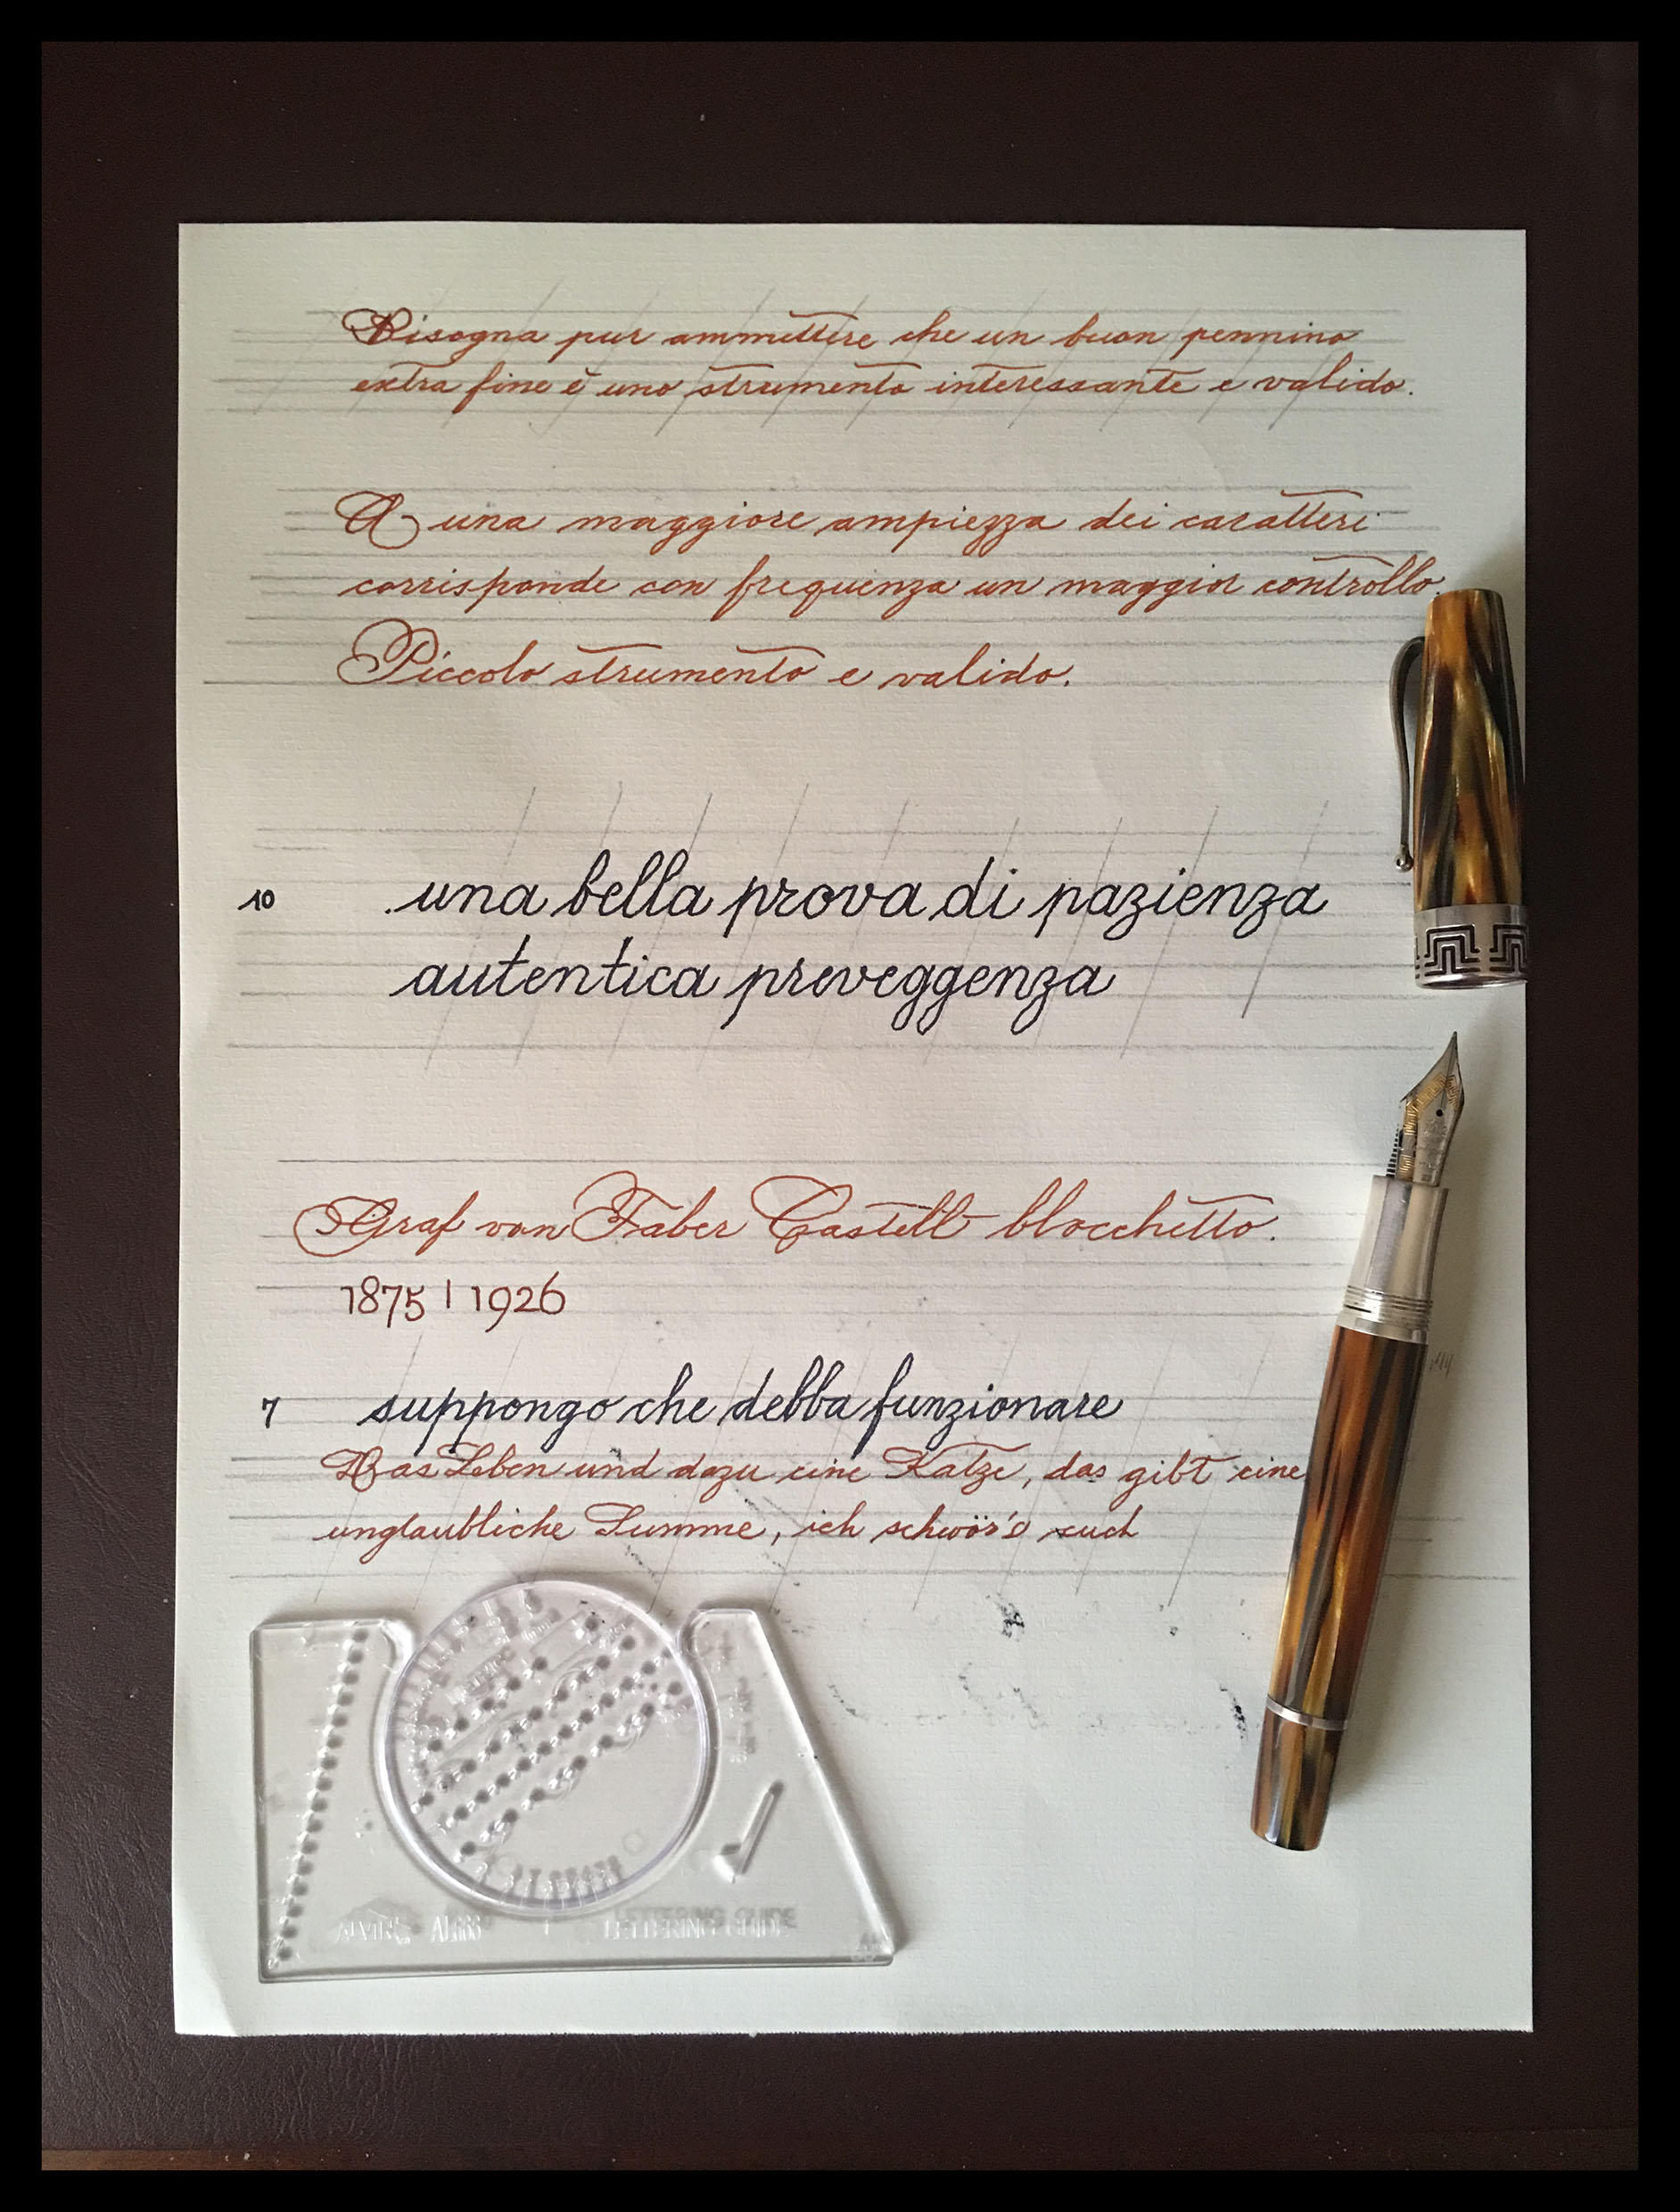 Bisogna pur ammettere che un buon pennino
extra fine è uno strumento interessante e valido.
A una maggiore ampiezza dei caratteri
corrisponde con frequenza un maggior controllo.
Piccolo strumento e valido.
10 una bella prova di pazienza
autentica preveggenza
Graf von Faber Castell blocchetto.
1875 | 1926
7 suppongo che debba funzionare
Das Leben und dazu eine Katze, das gibt eine
unglaubliche Summe, ich schwör's euch
LETTERING GUIDE